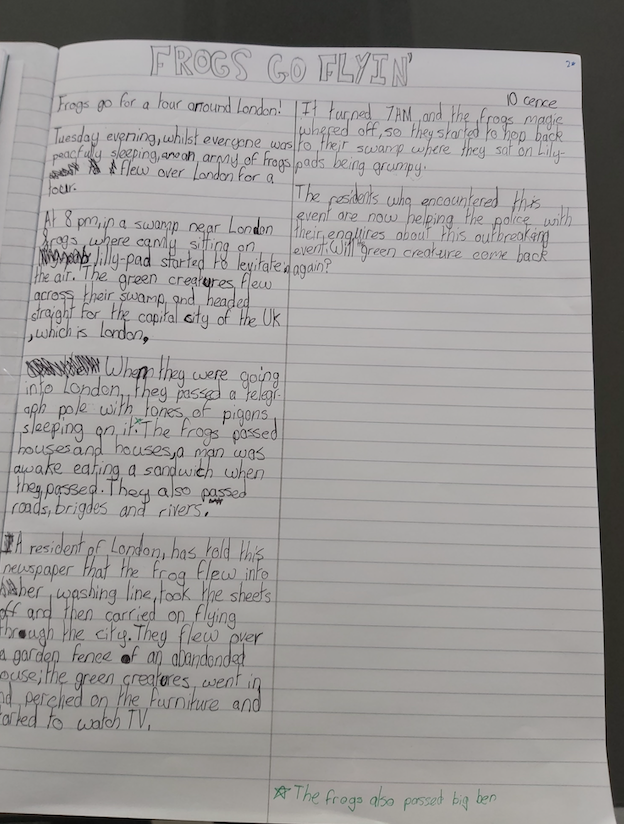 FROGS GO FLYIN'
Frogs go for a tour around London!
Tuesday evening, whilst everyone was
peacfully sleeping, an army of frogs
flew over London for a
tour.
At 8 pm, in a swamp near London
frogs, where camly sitting on
lilly-pad started to levitate in
the air. The green creatures flew
across their swamp and headed
straight for the capital city of the UK
, which is London.
When they were going
into London, they passed a telegr-
aph pole with tones of pigons
sleeping on it.* The frogs passed
houses and houses, a man was
awake eating a sandwich when
they, passed. They also passed
roads, brigdes and rivers.
A resident of London, has told this
newspaper that the frog flew into
her washing line, took the sheets
off and then carried on flying
through the city. They flew over
a garden fence of an abandonded
ouse; the green creatures, went in
nd perched on the furniture and
arted to watch TV.
10 cence
It turned 7AM, and the frogs magic
whered off, so they started to hop back
to their swamp where they sat on Lily-
pads being grumpy.
The residents who encountered this
event are now helping the police with
their enquires about this outbreaking
event. Will green creature come back
again?
☆ The frogs also passed big ben